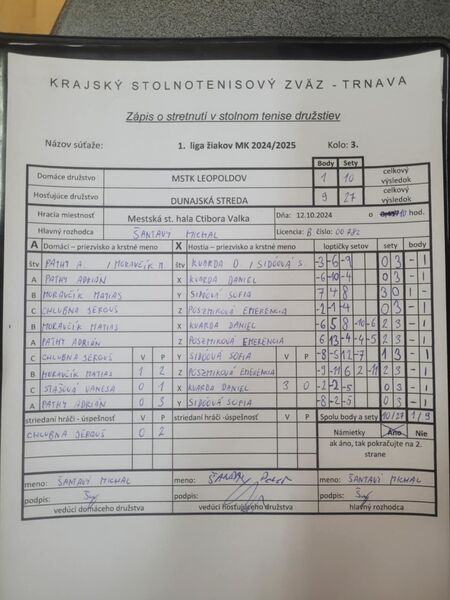 KRAJSKÝ STOLNOTENISOVÝ ZVÄZ - TRNAVA
Zápis o stretnutí v stolnom tenise družstiev
Názov súťaže: 1. liga žiakov MK 2024/2025 Kolo: 3.
Body Sety
Domáce družstvo MSTK LEOPOLDOV 1 10 celkový výsledok
Hosťujúce družstvo DUNAJSKÁ STREDA 9 27 celkový výsledok
Hracia miestnosť Mestská st. hala Ctibora Valka Dňa: 12.10.2024 o 10 hod.
Hlavný rozhodca ŠANTAVÝ MICHAL Licencia: B číslo: 00782
A Domáci - priezvisko a krstné meno X Hostia - priezvisko a krstné meno loptičky setov sety body
štv PATHY A. / MORAVČÍK M. štv KVARDA D. / SIDÓOVÁ S. -3 -6 -9 0 3 - 1
A PATHY ADRIÁN X KVARDA DANIEL -6 -10 -4 0 3 - 1
B MORAVČÍK MATIAS Y SIDÓOVÁ SOFIA 7 4 8 3 0 1 -
C CHLUBNA SEROUŠ Z POSZMIKOVÁ EMERENCIA -2 -1 -4 0 3 - 1
B MORAVČÍK MATIAS X KVARDA DANIEL -6 5 8 -10 -6 2 3 - 1
A PATHY ADRIÁN Z POSZMIKOVÁ EMERENCIA 6 13 -4 -4 -5 2 3 - 1
C CHLUBNA SEROUŠ V P Y SIDÓOVÁ SOFIA V P -8 -5 12 -7 1 3 - 1
B MORAVČÍK MATIAS 1 2 Z POSZMIKOVÁ EMERENCIA -9 -11 6 2 -11 2 3 - 1
C STAŠOVÁ VANESA 0 1 X KVARDA DANIEL 3 0 -2 -2 -5 0 3 - 1
A PATHY ADRIÁN 0 3 Y SIDÓOVÁ SOFIA -8 -6 -8 0 3 - 1
striedaní hráči - úspešnosť V P striedaní hráči -úspešnosť V P Spolu body a sety 10/27 1/9
CHLUBNA SEROUŠ 0 2 Námietky Áno Nie
ak áno, tak pokračujte na 2. strane
meno: ŠANTAVÝ MICHAL meno: meno: ŠANTAVÝ MICHAL
podpis: podpis: podpis:
vedúci domáceho družstva vedúci hosťujúceho družstva hlavný rozhodca